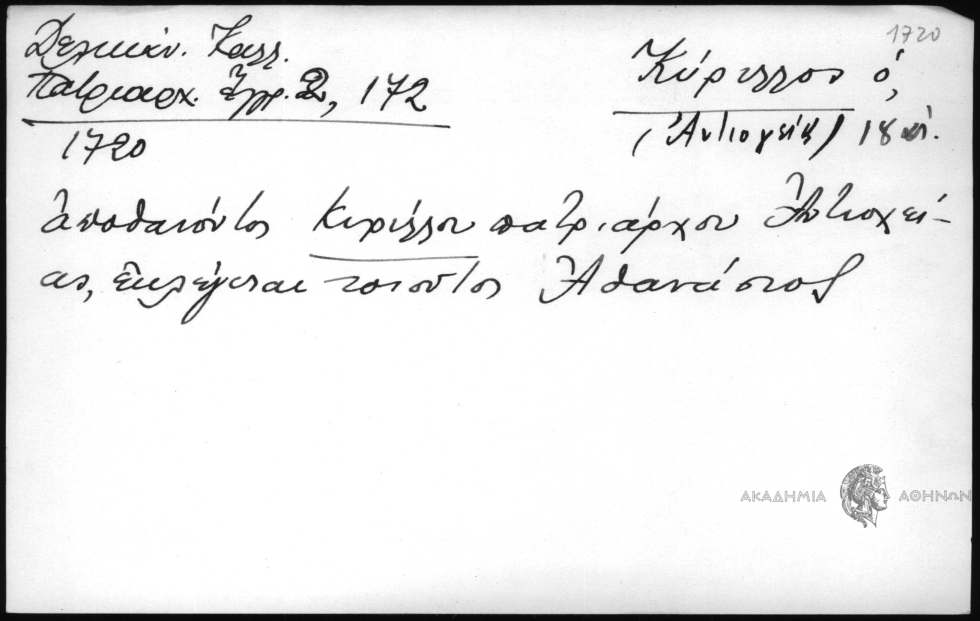 1720
Δελικάν. Καλλ.
Πατριαρχ. Ἔγγρ. 2, 172
1720
Κύριλλος ὁ,
(Ἀντιοχείας) 18 αἰ.
ἀποθανόντος Κυρίλλου πατριάρχου Ἀντιοχεί-
ας, ἐκλέγεται τοιοῦτος Ἀθανάσιος
ΑΚΑΔΗΜΙΑ ΑΘΗΝΩΝ